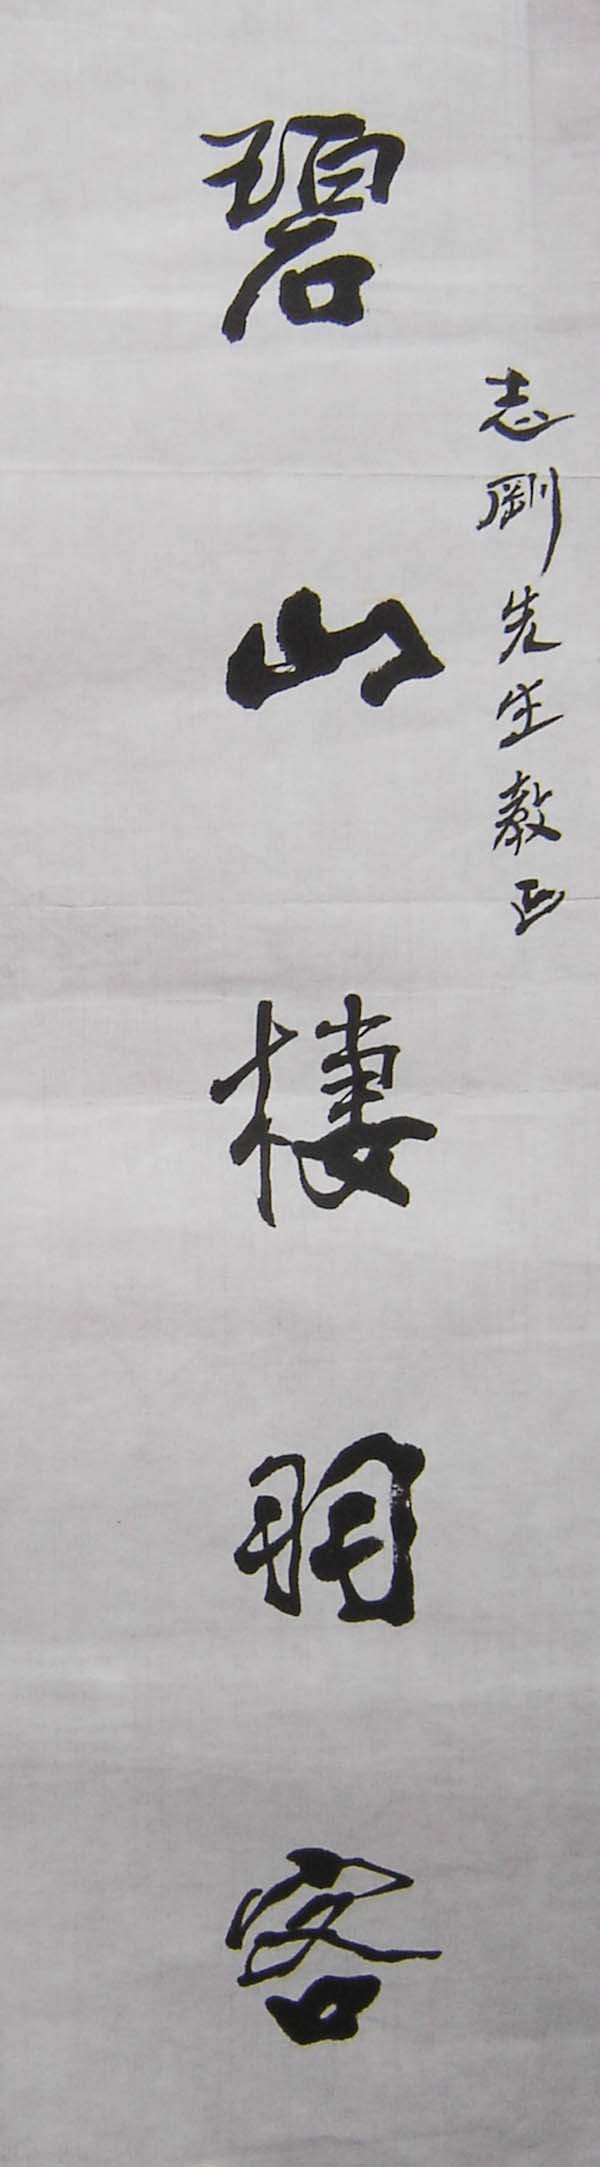 志剛先生教正
碧山棲羽客